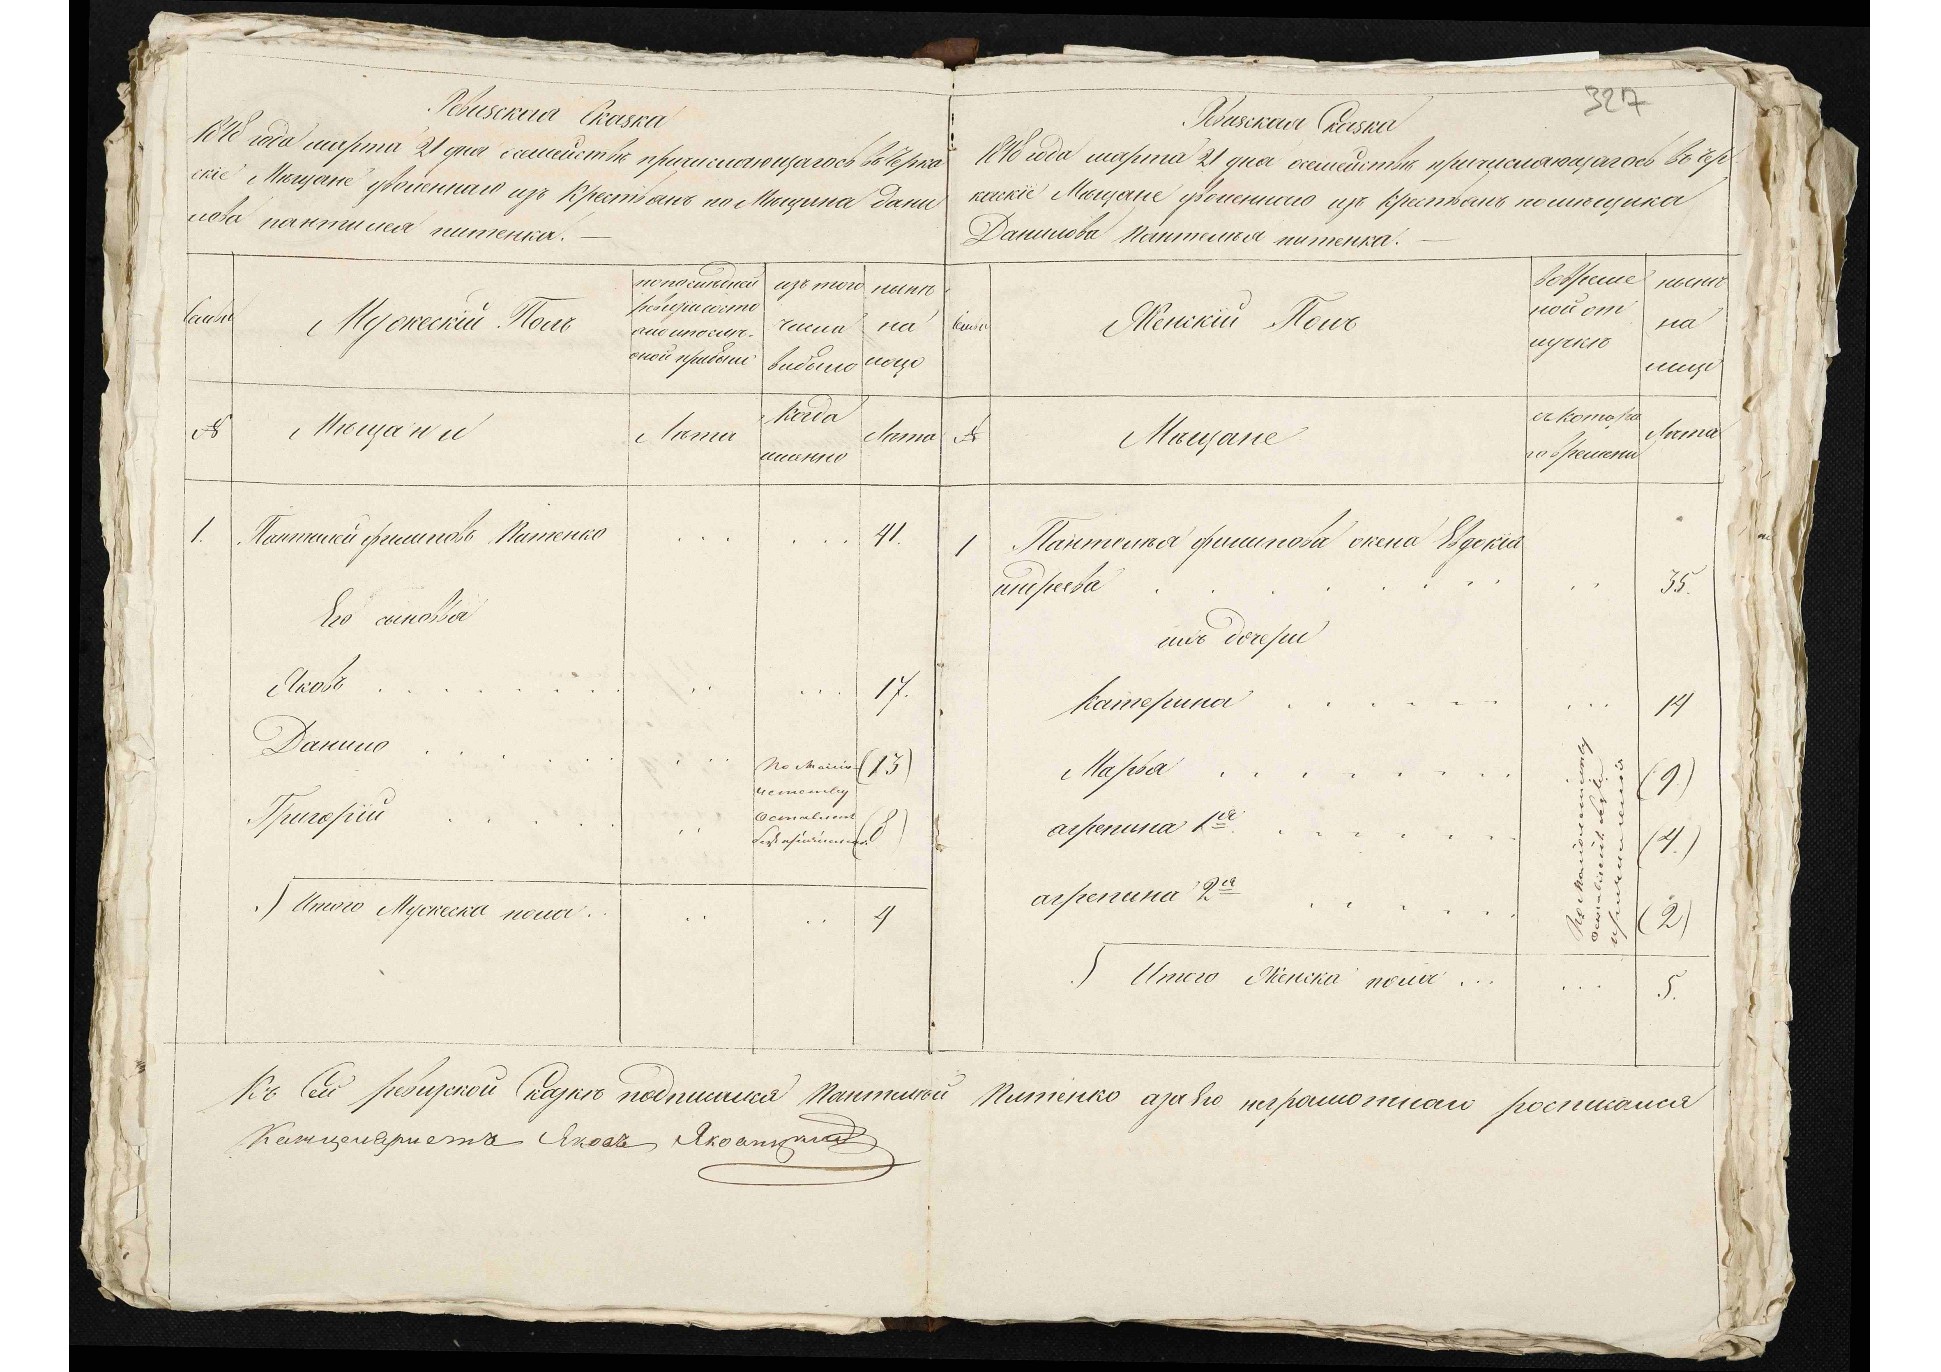 Ревизская Сказка
1848 года марта 21 дня семейства причисляющагося въ Черка
скіе Мѣщане уволеннаго изъ Крестьянъ помѣщика Дани
лова пантилея питенка. —
Семьи
Мужескій Полъ
по последней
ревизіи состо
яло и после
оной прибыли
изъ того
числа
выбыло
нынѣ
на
лицо
№
Мѣщани
Лѣта
Когда
имянно
Лѣта
1.
Пантилей филиповъ Питенко
41.
Его сыновья
Яковъ
17.
Данило
(13)
Григорій
(8)
по мало
летству
Оставлены
без причисления
Итого Мужеска пола
4
327
Ревизская Сказка
1848 года марта 21 дня семейства причисляющагося въ Чер
каскіе Мѣщане уволеннаго изъ крестьянъ помѣщика
Данилова Пантелѣя питенка. —
Семьи
Женскій Полъ
во време
ной от
лучкѣ
нынѣ
на
лицо
№
Мѣщане
съ котора
го времени
Лѣта
1
Пантелѣя филипова жена Евдокія
андреева
35.
ихъ дочери
Катерина
14
Марья
(9)
агрепина 1я
(4)
агрепина 2я
(2)
По малолетству
оставлены безъ
причисления
Итого Женска пола
5.
Къ Сей ревизской Сказкѣ подписался Пантилѣй Питенко а за Его неграмотнаго росписался
Канцеляристъ Яковъ